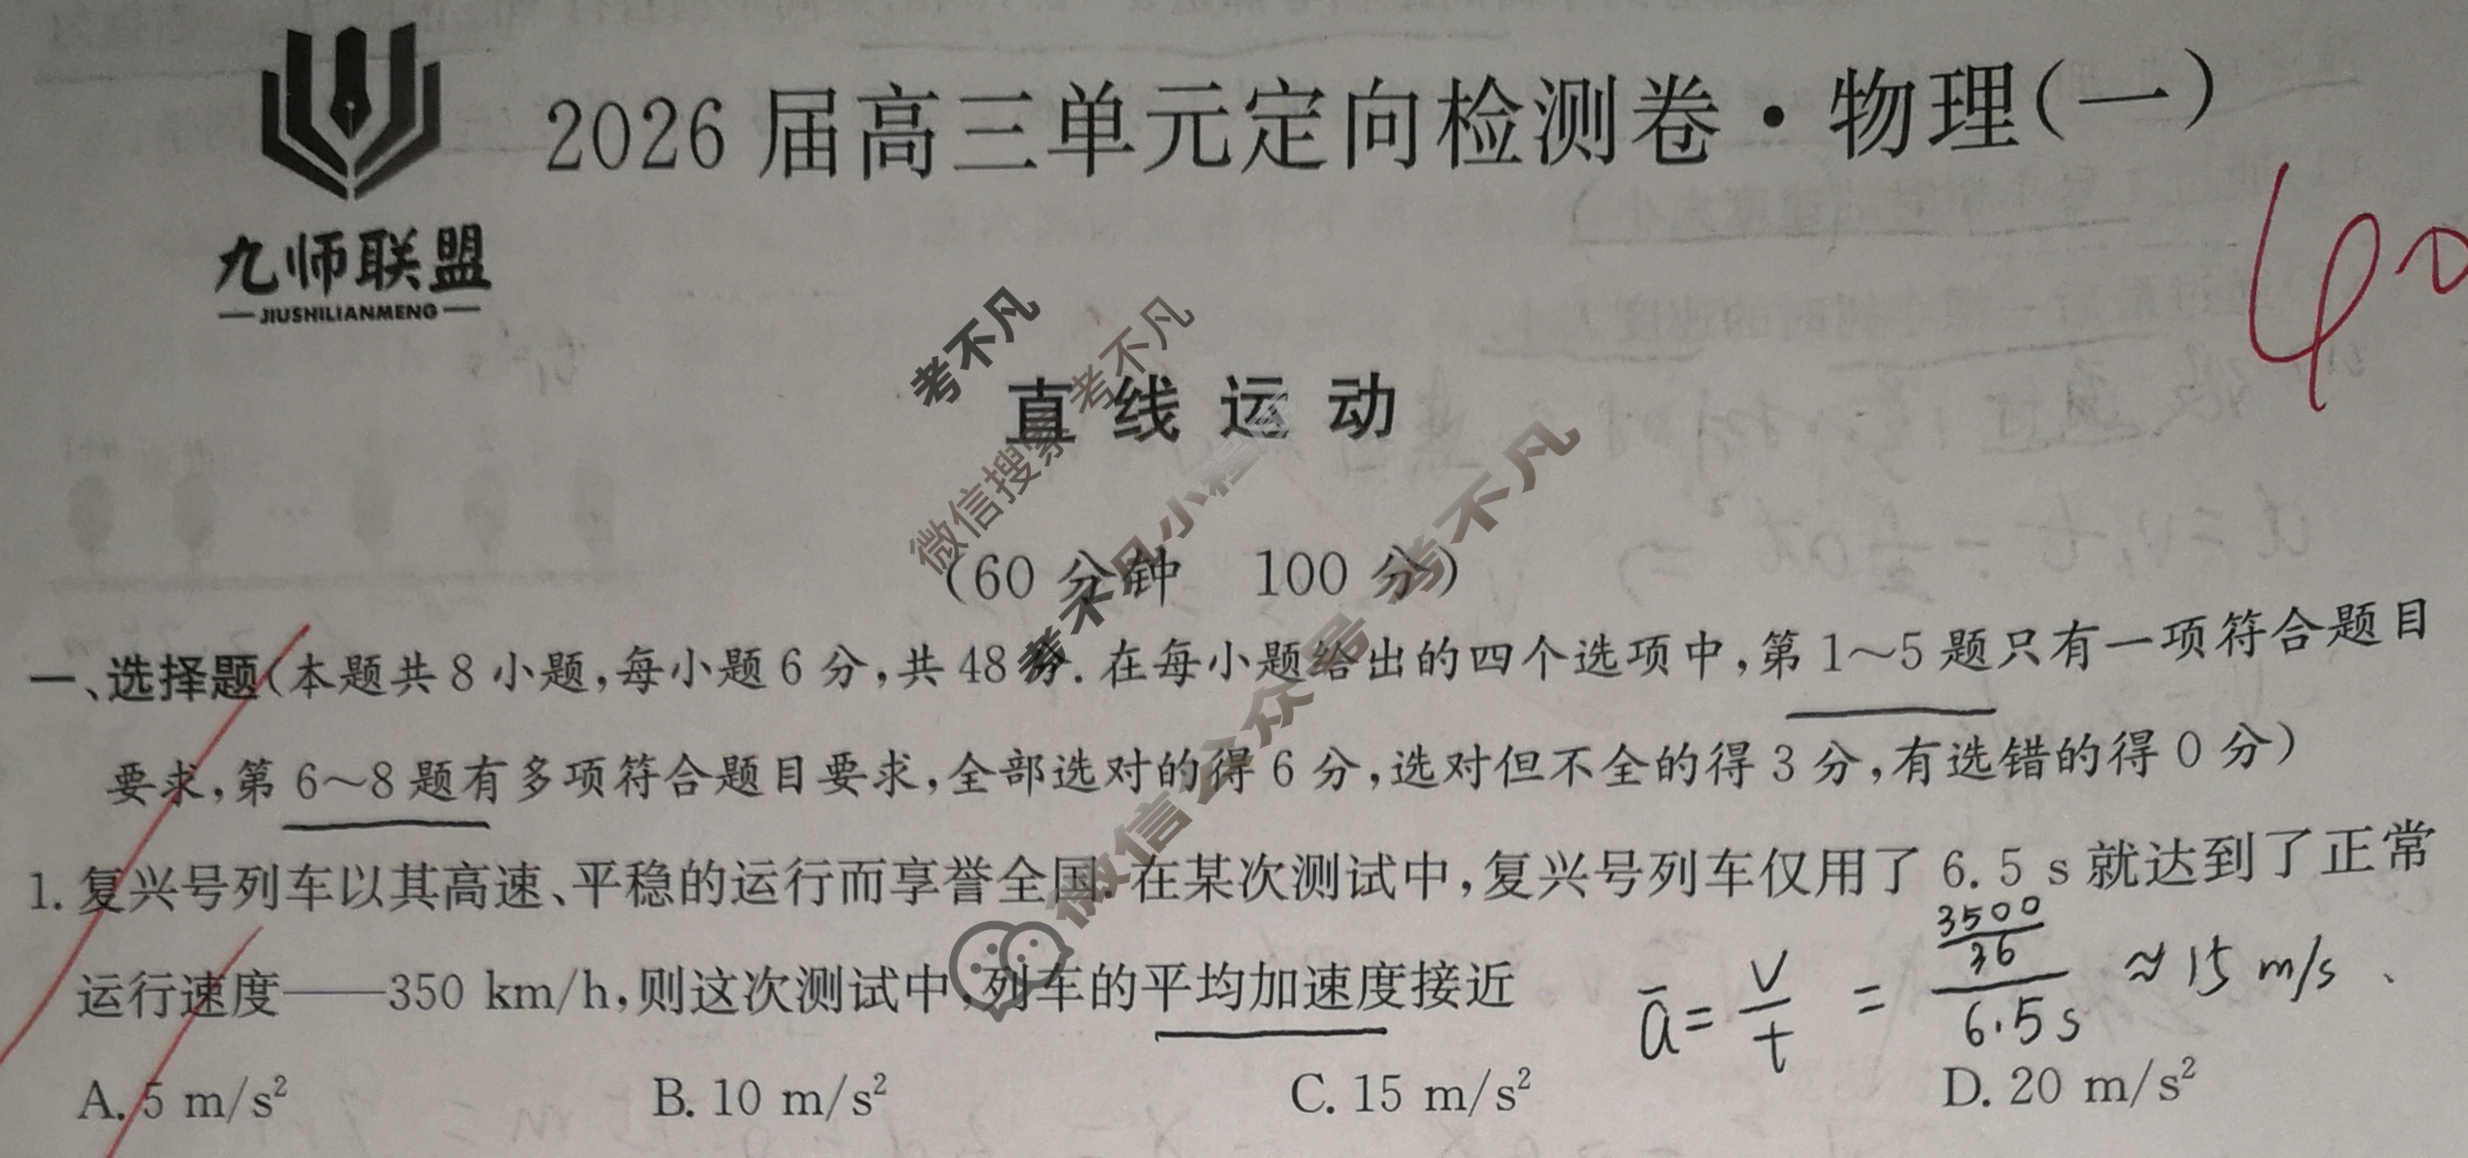 2026届高三单元定向检测卷·物理(一)
九师联盟
JIUSHILIANMENG
40
考不凡
微信搜索 考不凡
直线运动
考不凡小程序
(60分钟 100分)
微信公众号 考不凡
一、选择题(本题共8小题,每小题6分,共48分.在每小题给出的四个选项中,第1~5题只有一项符合题目
要求,第6~8题有多项符合题目要求,全部选对的得6分,选对但不全的得3分,有选错的得0分)
1.复兴号列车以其高速、平稳的运行而享誉全国.在某次测试中,复兴号列车仅用了6.5 s就达到了正常
运行速度——350 km/h,则这次测试中,列车的平均加速度接近
ā = v/t = (3500/36)/6.5s ≈ 15 m/s
A.5 m/s² B.10 m/s² C.15 m/s² D.20 m/s²